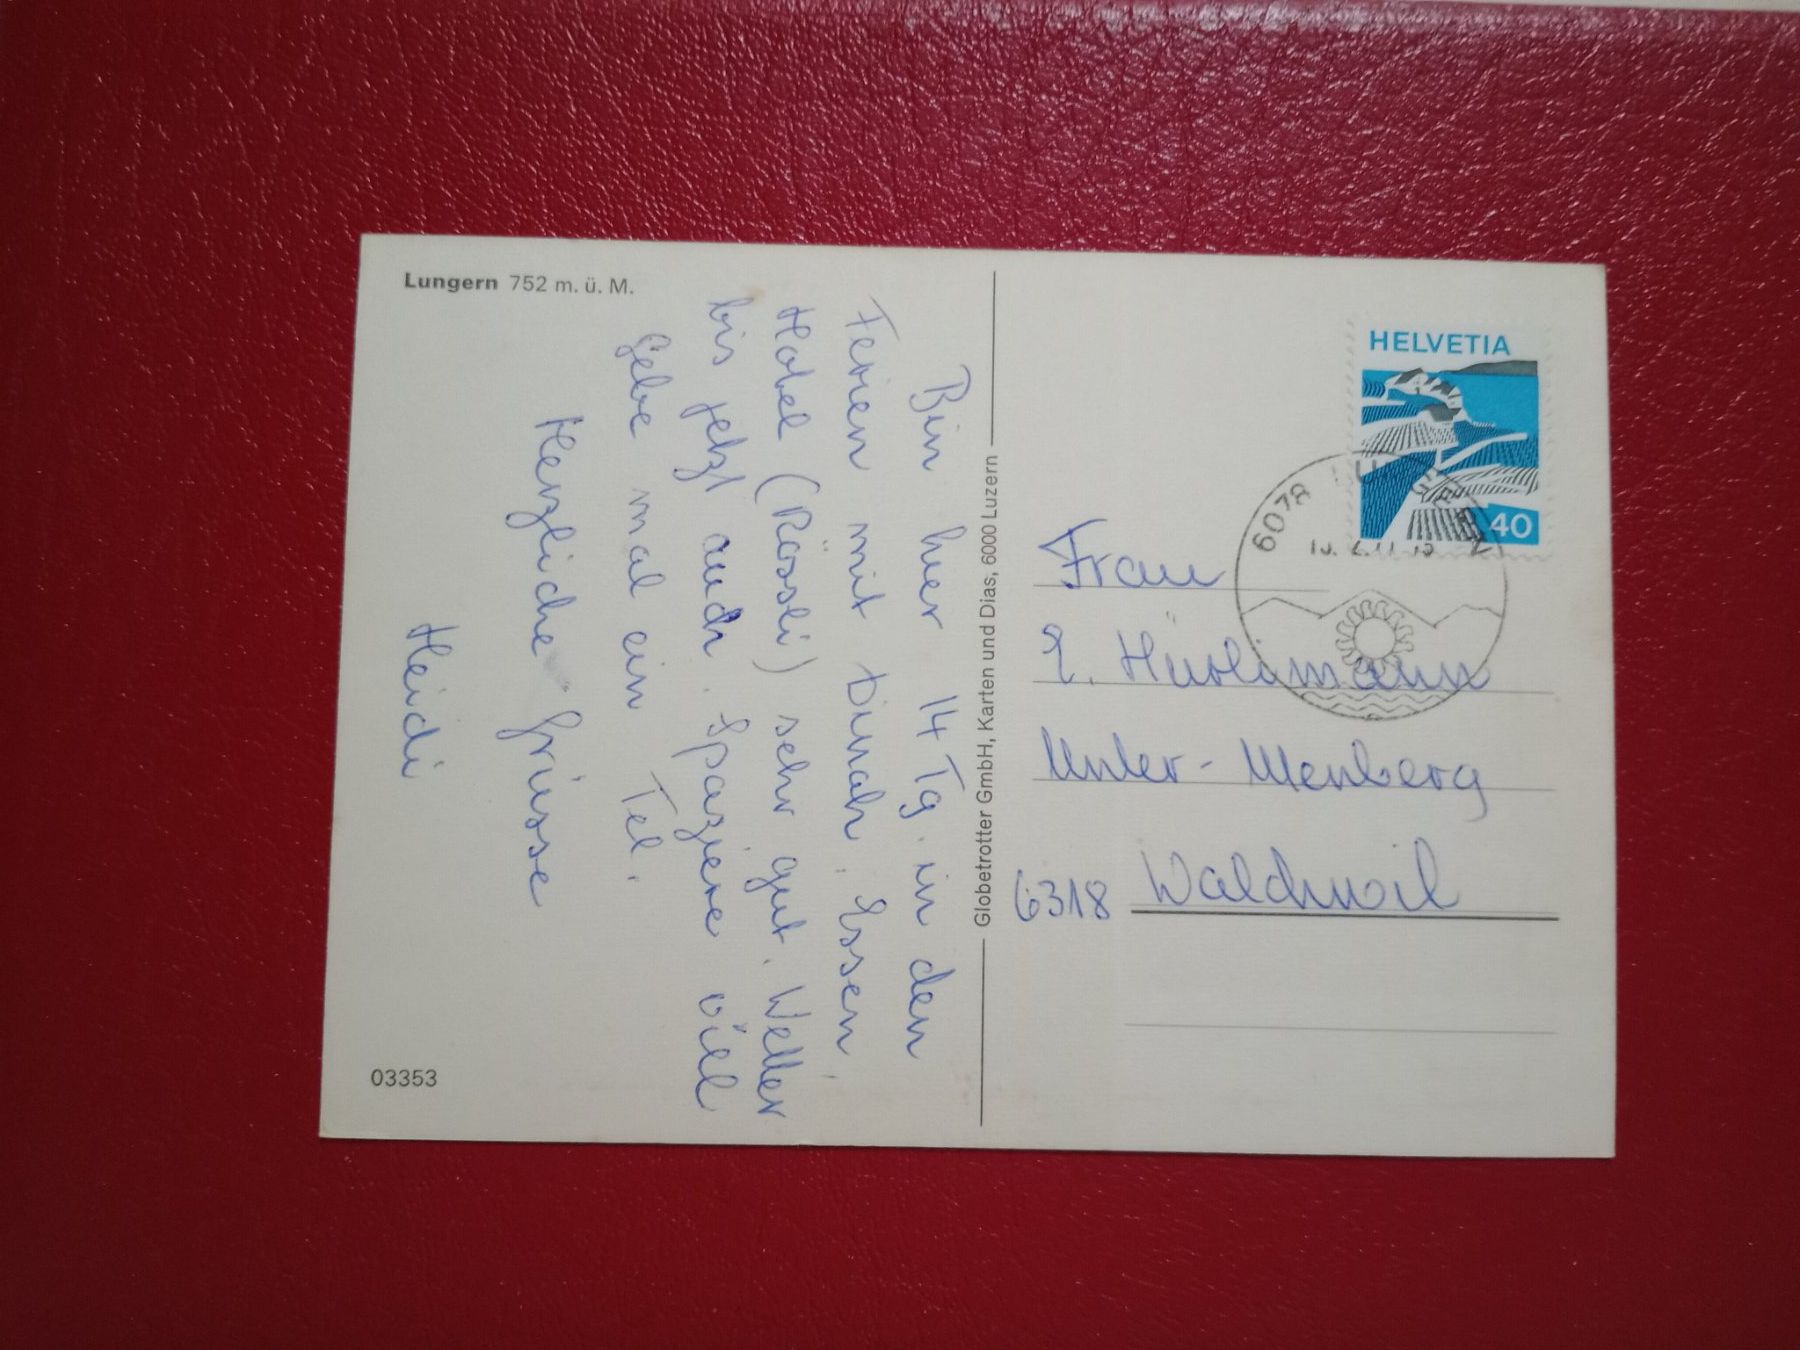 Lungern 752 m. ü. M.
Bin hier 14 Tg. in den
Ferien mit Dinah. Essen,
Hotel (Rössli) sehr gut. Wetter
bis jetzt auch. Spaziere viel
Gebe mal ein Tel.
Herzliche Grüsse
Heidi
03353
Globetrotter GmbH, Karten und Dias, 6000 Luzern
HELVETIA
40
6078 LUNGERN
Frau
E. Hürlimann
Unter-
6318 Walchwil